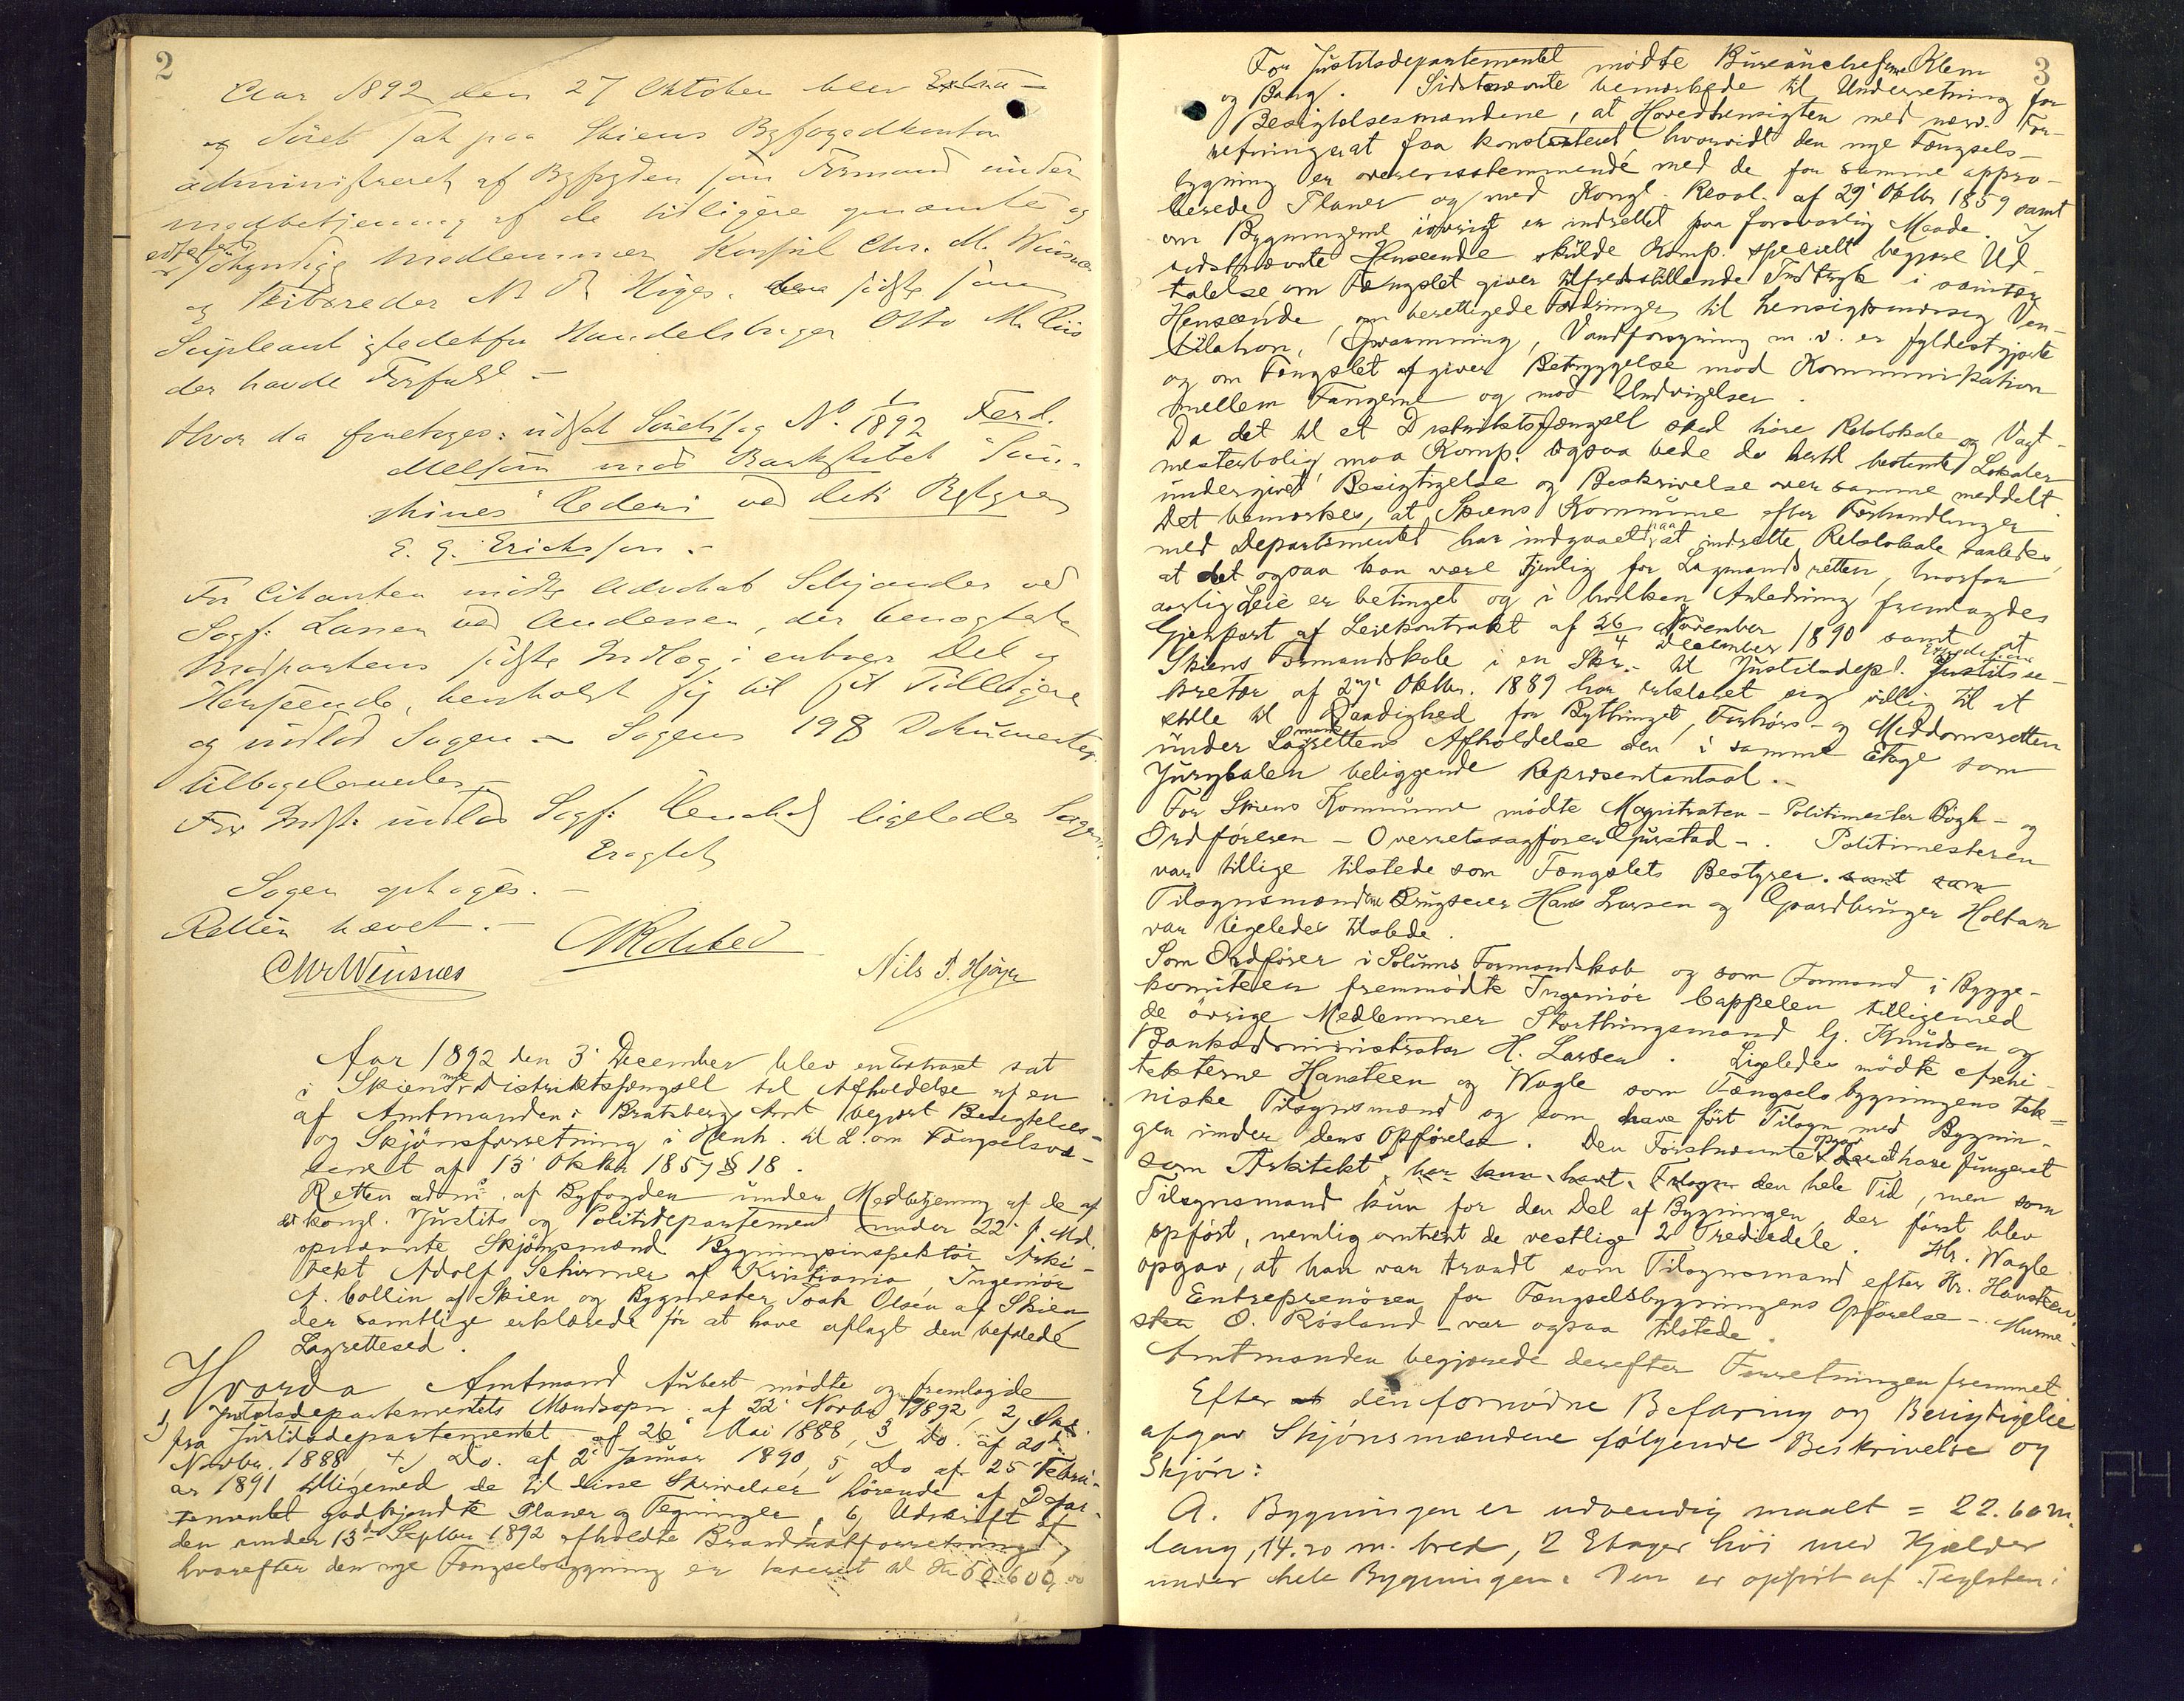 2
Aar 1892 den 27 Oktober blev Extra-
og Söret sat paa Skiens Byfogedkontor
administreret af Byfogden som Formand under
medbetjening af de tidligere opnævnte og
søkyndige Medlemmer Konsul Chr. M. Wiisnes
og Skibsreder N. P. Höyer. den sidste som
Supleant istedetfor Handelsborger Otto M.
der havde Forfald. -
Hvor da foretoges: udsat Söretssag No. 1/1892 Ferd.
med Barkskibet "Sun-
shines" Rederi ved dets Bestyrer
E. G. Ericksson. -
For Citanten mødte Advokat Schjander ved
Sagf: Larsen ved Andersen, der benegtede
Modpartens sidste Indlæg i enhver Del og
Henseende, henholdt sig til sit Tidligere
og indlod Sagen. Sagens 198 Dokumenter
tilbageleveredes. -
For Indst: indlod Sagf: ligeledes Sagen.
Eragtet
Sagen optages. -
Retten hævet. -
Chr Wiisnes
Nils P. Höyer
Aar 1892 den 3' December blev en Extraret sat
i Skiens nye Distriktsfængsel til Afholdelse af en
af Amtmanden i Bratsberg Amt begjært Besigtelses-
og Skjönsforretning i Henh. til L. om Fængselsvæ-
senet af 13' Oktbr 1857 § 18.
Retten adm. af Byfogden under Medbetjening af de af
det kongl. Justits og Politidepartement under 22' f. Md.
opnævnte Skjönsmænd Bygningsinspektör Arki-
tekt Adolf Schirmer af Kristiania, Ingeniör
A. Collin af Skien og Bygmester Isak Olsen af Skien
der samtlige erklærede för at have aflagt den befalede
Lagrettesed.
Hvorda Amtmand Aubert mødte og fremlagde
1) Justitsdepartementets af 22' Novbr 1892, 2)
fra Justitsdepartementet af 26' Mai 1888, 3) Do. af 20de
Novbr. 1888, 4) Do. af 2' Januar 1890, 5) Do af 25' Febru-
ar 1891 tilligemed de til disse Skrivelser hörende af Depar-
tementet godkjendte Planer og Tegninger, 6) Udskrift af
den under 13de Septbr 1892 afholdte Brandtaxtforretning,
hvorefter den nye Fængselsbygning er taxeret til Kr 50.600,00
3
For Justitsdepartementet mödte Bureaucheferne Klem
og Bang. Sidstnævnte bemærkede til Underretning for
Besigtelsesmændene, at Hovedhensigten med nærv. For-
retning er at faa konstateret hvorvidt den nye Fængsels-
bygning er overensstemmende med de for samme appro-
berede Planer og med Kongl. Resol. af 29' Oktbr 1859 samt
om Bygningerne iövrigt er indrettet paa forsvarlig Maade. I
sidstnævnte Henseende skulde Komp. specielt begjære Ud-
talelse om Fængslet giver tilfredsstillende Indtryk i sanitær
Henseende, om berettigede Fordringer til hensigtsmæssig Ven-
tilation, Opvarmning, Vandforsyning m. v. er fyldestgjorte
og om Fængslet afgiver Betryggelse mod Kommunikation
mellem Fangerne og mod Undvigelser.
Da det til et Distriktsfængsel skal höre Retslokale og Vagt-
mesterbolig, maa Komp. ogsaa bede de hertil bestemte Lokaler
undergivet Besigtigelse og Beskrivelse over samme meddelt.
Det bemærkes, at Skiens Kommune efter Forhandlinger
med Departementet har indgaaet paa at indrette Retslokale saaledes,
at det ogsaa kan være tjenlig for Lagmandsretten, hvorfor
aarlig Leie er betinget og i hvilken Anledning fremlagdes
Gjenpart af Leiekontrakt af 26 November / 4 December 1890 samt at
Skiens Formandskab i en Skr. til Justitsdep. Expeditions
kretær af 2den Oktbr. 1889 har erklæret sig villig til at
stille til Raadighed for Bythinget, Forhörs- og Meddomsretten
under Lagmandsrettens Afholdelse den i samme Etage som
Jurysalen beliggende Repræsentantsal. -
For Skiens Kommune mödte Magistraten - Politimester Bögh - og
Ordföreren - Overretssagförer Gjurstad -. Politimesteren
var tillige tilstede som Fængslets Bestyrer. samt som
Tilsynsmændene Brugseier Hans Larsen og Gaardbruger Holtan
var ligeledes tilstede.
Som Ordförer i Solums Formandskab og som Formand i Bygge-
komiteen fremmödte Ingeniör Cappelen tilligemed
de övrige Medlemmer Storthingsmand G. Knudsen og
Bankadministrator H. Larsen. Ligeledes mödte Arki-
tekterne Hansteen og Wagle som Fængselsbygningens tek-
niske Tilsynsmænd og som have fört Tilsyn med Bygnin-
gen under dens Opförelse. Den Förstnævnte opgav at have fungeret
som Arkitekt, har kun havt Tilsyn den hele Tid, men som
Tilsynsmand kun for den Del af Bygningen, der först blev
opfört, nemlig omtrent de vestlige 2 Trediedele. Hr. Wagle
opgav, at han var traadt som Tilsynsmand efter Hr. Hansteen.
Entreprenören for Fængselsbygningens Opförelse - Murme-
ster O. Rösland - var ogsaa tilstede.
Amtmanden begjærede derefter Forretningen fremmet.
Efter at den fornödne Befaring og Besigtigelse
afgav Skjönsmændene fölgende Beskrivelse og
Skjön:
A. Bygningen er udvendig maalt = 22.60 m.
lang, 14.20 m. bred, 2 Etager höi med Kjælder
under hele Bygningen. Den er opfört af Teglsten i